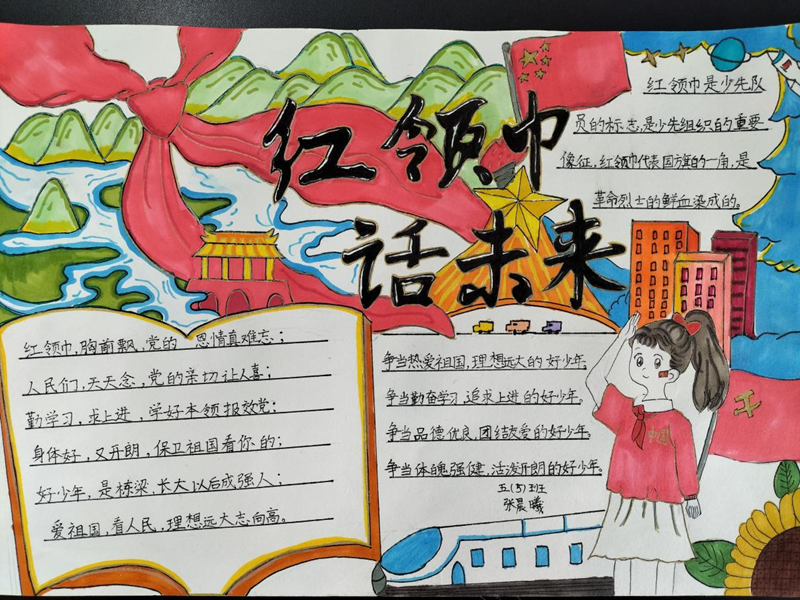 红领巾
话未来
红领巾是少先队
员的标志,是少先组织的重要
像征,红领巾代表国方旗的一角,是
革命烈士的鲜血染成的。
红领巾,胸前飘,党的 恩情真难忘;
人民们,天天念,党的亲切让人喜;
勤学习,求上进,学好本领报效党;
身体好,又开朗,保卫祖国看你的;
好少年,是栋梁,长大以后成强人;
爱祖国,看人民,理想远大志向高。
争当热爱祖国,理想远大的好少年,
争当勤奋学习 追求上进的好少年,
争当品德优良,团结友爱的好少年,
争当体魄强健,活泼开朗的好少年。
五(5)班
张晨曦
中国